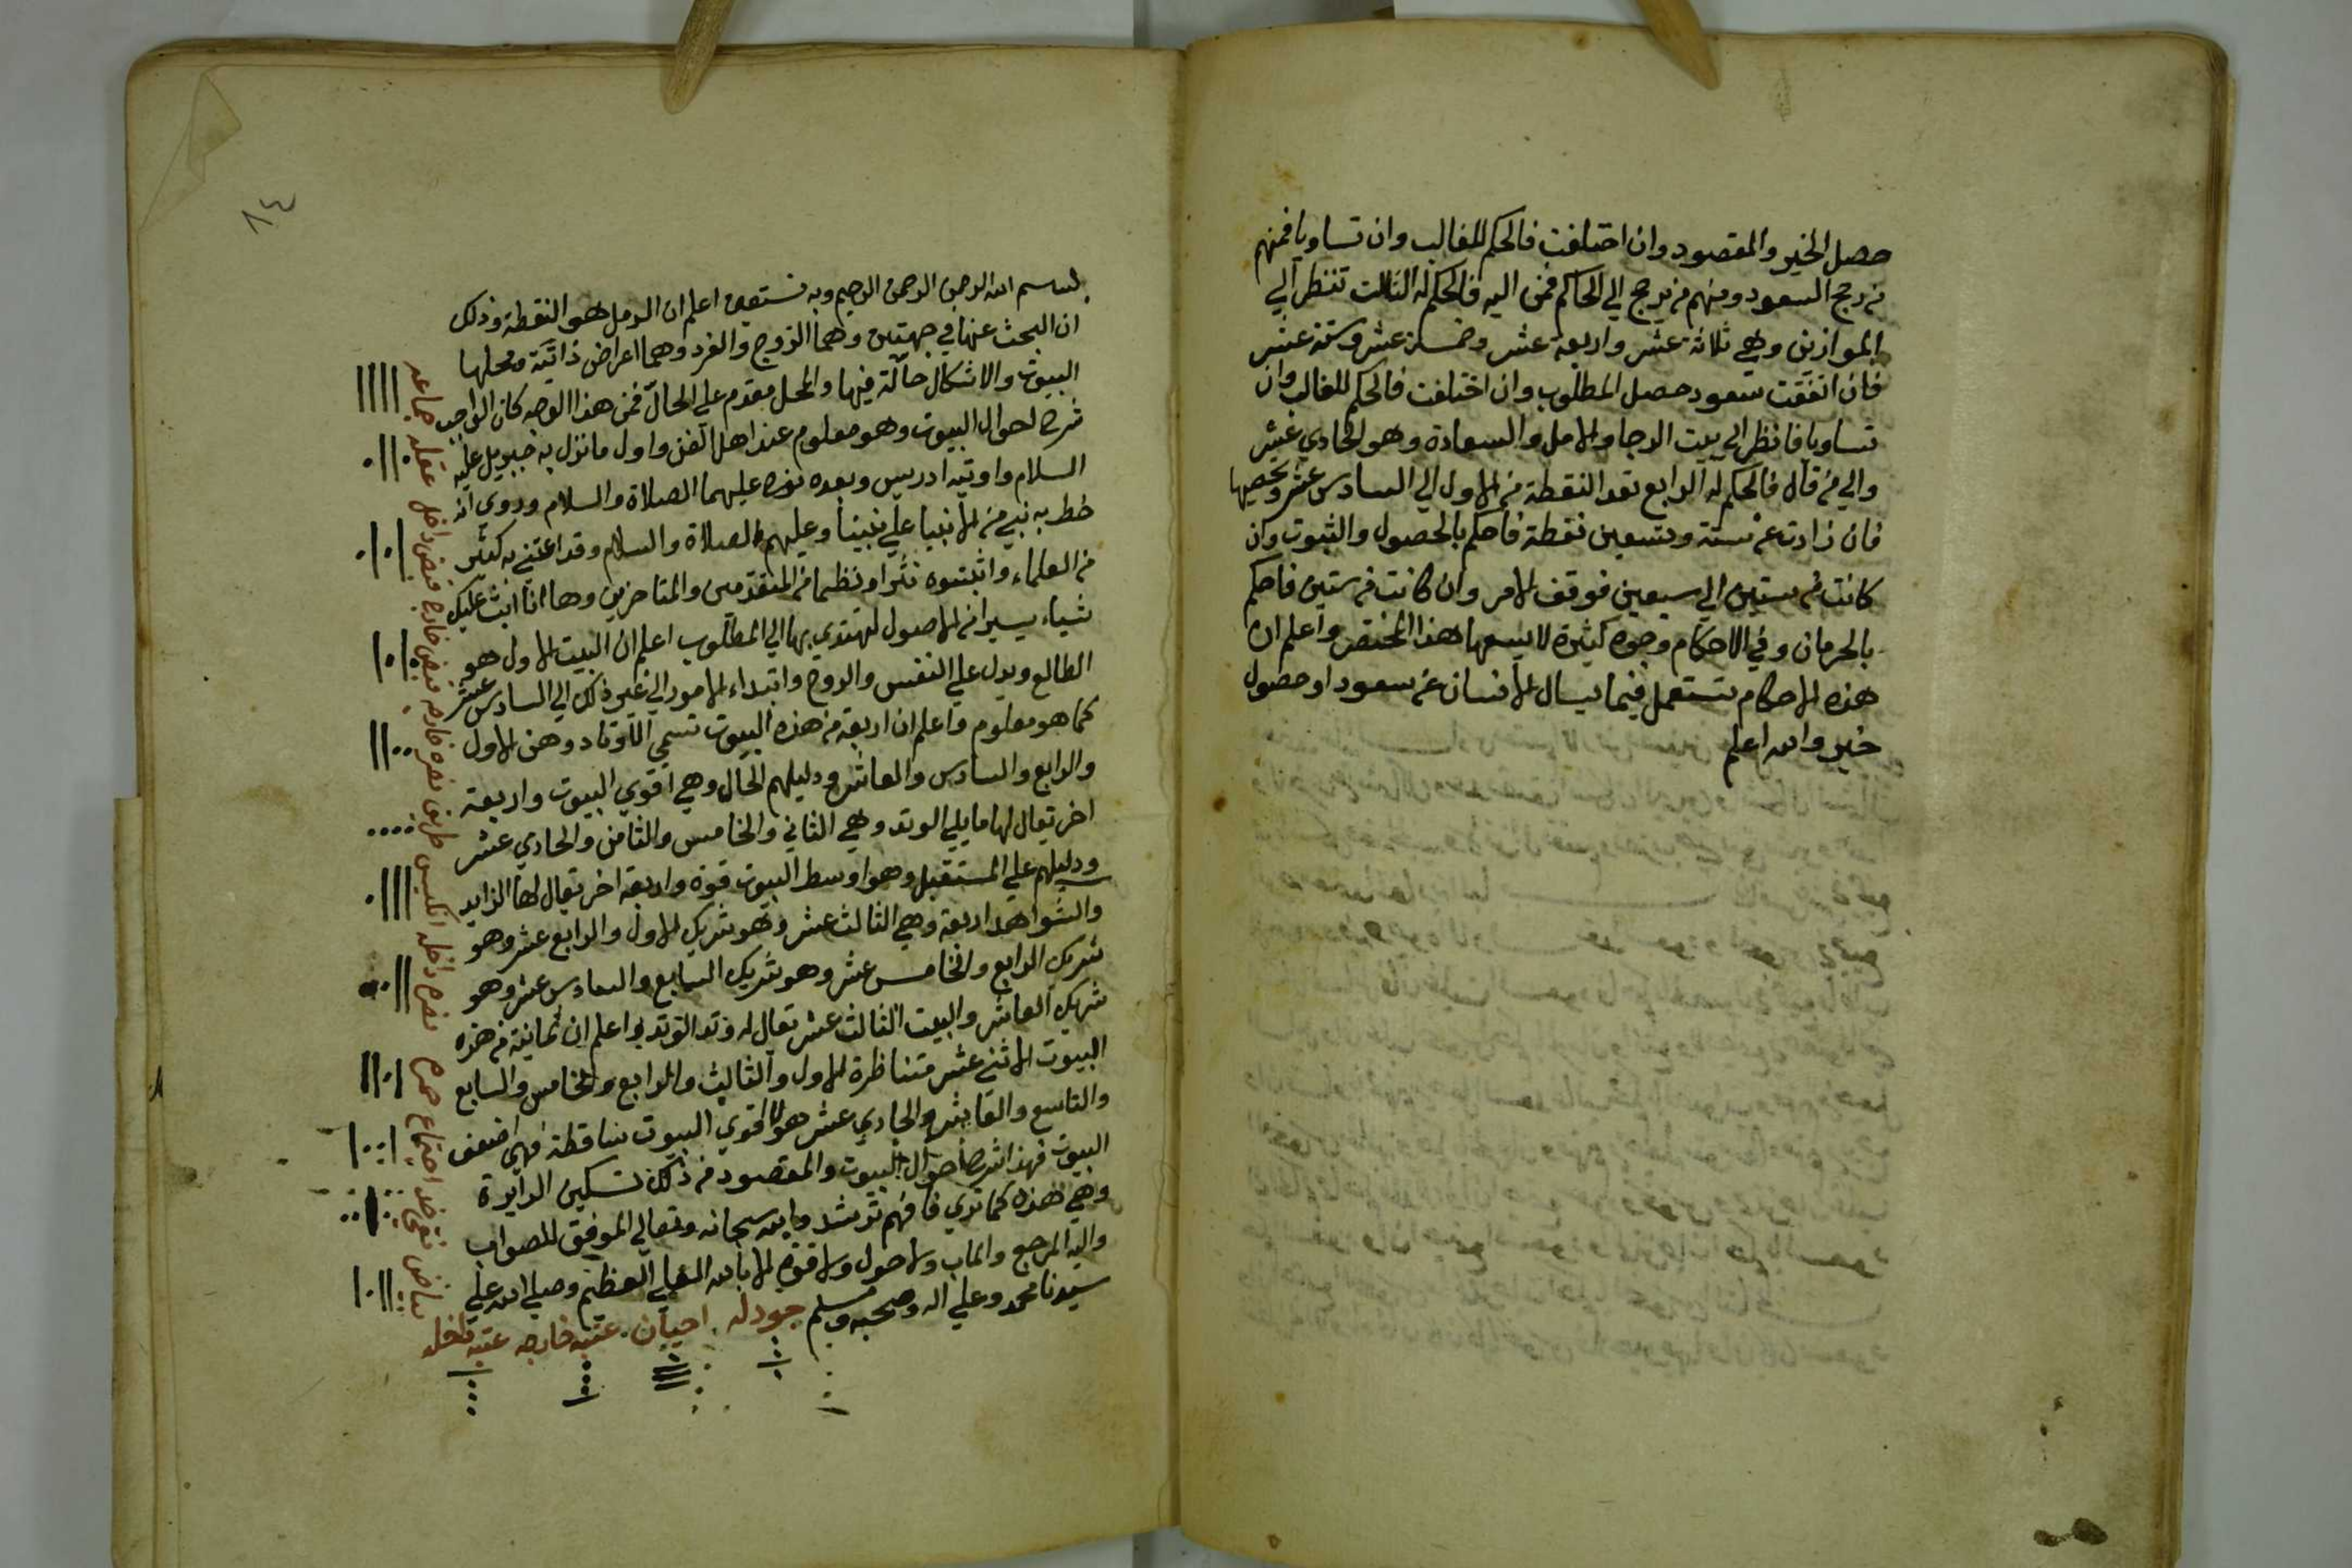 حصل الخير والمقصود وان اختلفت فالحكم للغالب وان تساويا فمنهم
من رجح السعود ومنهم من يرجح الي الحاكم فمن اليه فالحكم له الثالث تنظر الي
الموازين وهي ثلاثة عشر واربعة عشر وخمسة عشر وستة عشر
فان اتفقت سعود حصل المطلوب وان اختلفت فالحكم للغالب وان
تساويا فانظر الي بيت الرجا والامل والسعادة وهو الحادي عشر
والي من قال فالحكم له الرابع تعد النقطة من الاول الي السادس عشر وتحصيها
فان زادت عن ستة وتسعين نقطة فاحكم بالحصول والثبوت وان
كانت من ستين الي سبعين فوقف الامر وان كانت من ستين فاحكم
بالحرمان وفي الاحكام وجوه كثيرة لا يسعها هذا المختصر واعلم ان
هذه الاحكام تستعمل فيما يسال الانسان عن سعود او حصول
خير والله اعلم
٨٤
بسم الله الرحمن الرحيم وبه نستعين اعلم ان الرمل هو النقطة وذلك
ان البحث عنها في جهتين وهما الزوج والفرد وهما اعراض ذاتية ومحلها
البيوت والاشكال حالّة فيها والمحل مقدم علي الحالّ فمن هذا الوجه كان الواجب
شرح احوال البيوت وهو معلوم عند اهل الفن واول ما نزل به جبريل عليه
السلام واوتيه ادريس وبعده نوح عليهما الصلاة والسلام وروي انه
خط به نبي من الانبيا علي نبينا وعليهم الصلاة والسلام وقد اعتني به كثير
من العلماء واثبتوه نثرا ونظما من المتقدمين والمتاخرين وها انا ابث عليك
شياء يسيرا من الاصول لتهتدي بها الي المطلوب اعلم ان البيت الاول هو
الطالع ويدل علي النفس والروح وابتداء الامور الي غير ذلك الي السادس عشر
كما هو معلوم واعلم ان اربعة من هذه البيوت تسمي الاوتاد وهن الاول
والرابع والسادس والعاشر ودليلهم الحال وهي اقوي البيوت واربعة
اخر يقال لها ما يلي الوتد وهي الثاني والخامس والثامن والحادي عشر
ودليلهم علي المستقبل وهو اوسط البيوت قوة واربعة اخر يقال لها الزايد
والشواهد اربعة وهي الثالث عشر وهو شريك الاول والرابع عشر وهو
شريك الرابع والخامس عشر وهو شريك السابع والسادس عشر وهو
شريك العاشر والبيت الثالث عشر يقال له وتد الوتد واعلم ان ثمانية من هذه
البيوت الاثني عشر متناظرة الاول والثالث والرابع والخامس والسابع
والتاسع والعاشر والحادي عشر هو الاقوي البيوت ساقطة فهي اضعف
البيوت فهذا شرح احوال البيوت والمقصود من ذلك تسكين الدايرة
وهي هذه كما تري فافهم ترشد والله سبحانه وتعالي الموفق للصواب
واليه المرجع والماب ولا حول ولا قوة الا بالله العلي العظيم وصلي الله علي
سيدنا محمد وعلي اله وصحبه وسلم جودله احيان عتبه خارجه عتبه داخله
جماعه عقله قبض داخل قبض خارج نصره خارجه طريق انكيس نصره داخله حمره اجتماع نقي خد بياض